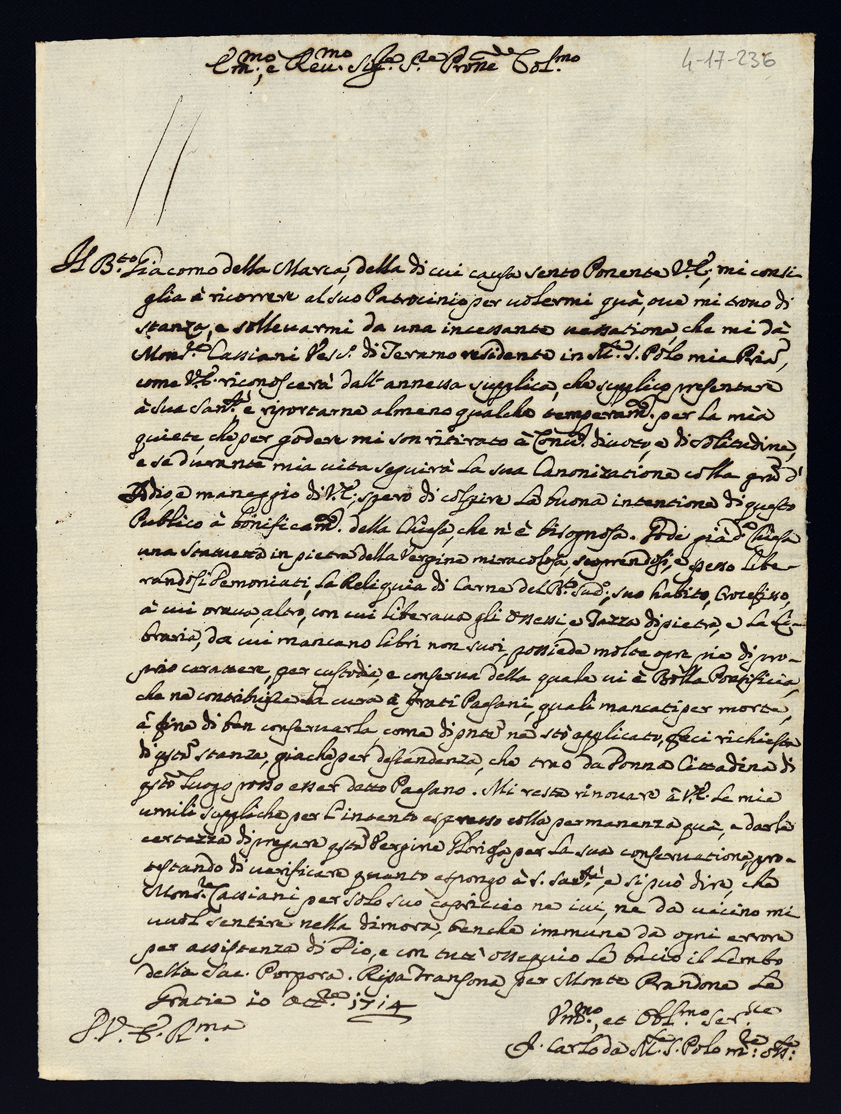 Em.mo, e Rev.mo Sig.re S.re Prone Col.mo
4-17-236
Il B.to Giacomo della Marca, della di cui causa sento Ponente V.E., mi consi-
glia à ricorrere al suo Patrocinio per volermi quà, ove mi trovo di
stanza, e sollevarmi da una incessante vessatione che mi dà
Mons.re Cassiani Vesc.o di Teramo residente in M.te S. Polo mia Pria,
come V.E. riconoscerà dall'annessa supplica, che supplico presentare
à sua San.tà, e riportarne almeno qualche temperam.to per la mia
quiete, che per godere mi son ritirato à Conv.to divoto, e di solitudine,
e se durante mia vita seguirà la sua Canonizatione colla gra d'
Iddio, e maneggio di V.E. spero di colpire la buona intentione di questo
Publico à bonificam.to della Chiesa, che n'è bisognosa. Gode già d.a Chiesa
una statuetta in pietra della Vergine miracolosa, scoprendosi, e spesso libe-
randosi Demoniati, la Reliquia di Carne del B.to sud.o, suo habito, Crocefisso,
à cui orava, altro, con cui liberava gli ossessi e Tazza di pietra, e la Li-
braria, da cui mancano libri non suoi, possiede molte opre pie di pro-
prio carattere, per custodia, e conserva della quale vi è Bolla Pontificia,
che ne contribuisce la cura à frati Paesani, quali mancati per morte,
à fine di ben conservarla come di pnte ne stò applicato, feci richiesta
di qsta stanza, giache per descendenza, che trao da Donna Cittadina di
qsto luogo posso esser detto Paesano. Mi resta rinovare à V.E. le mie
umili suppliche per l'intento espresso colla permanenza quà, e darle
certezza di pregare qsta Vergine Gloriosa per la sua conservatione, pro-
testando di verificare quanto espongo à S. San.tà, e si può dire, che
Mons.re Cassiani per solo suo capriccio ne ivi, ne da vicino mi
vuol sentire nella dimora, benche immune da ogni errore
per assistenza di Dio, e con tutt' ossequio le bacio il Lembo
della Sac. Porpora. Ripa Transona per Monte Prandone le
Gratie 10 Ott.re 1714
D. V. E. R.ma
Um.mo, et Obl.mo Ser.re
F. Carlo da M.te S. Polo